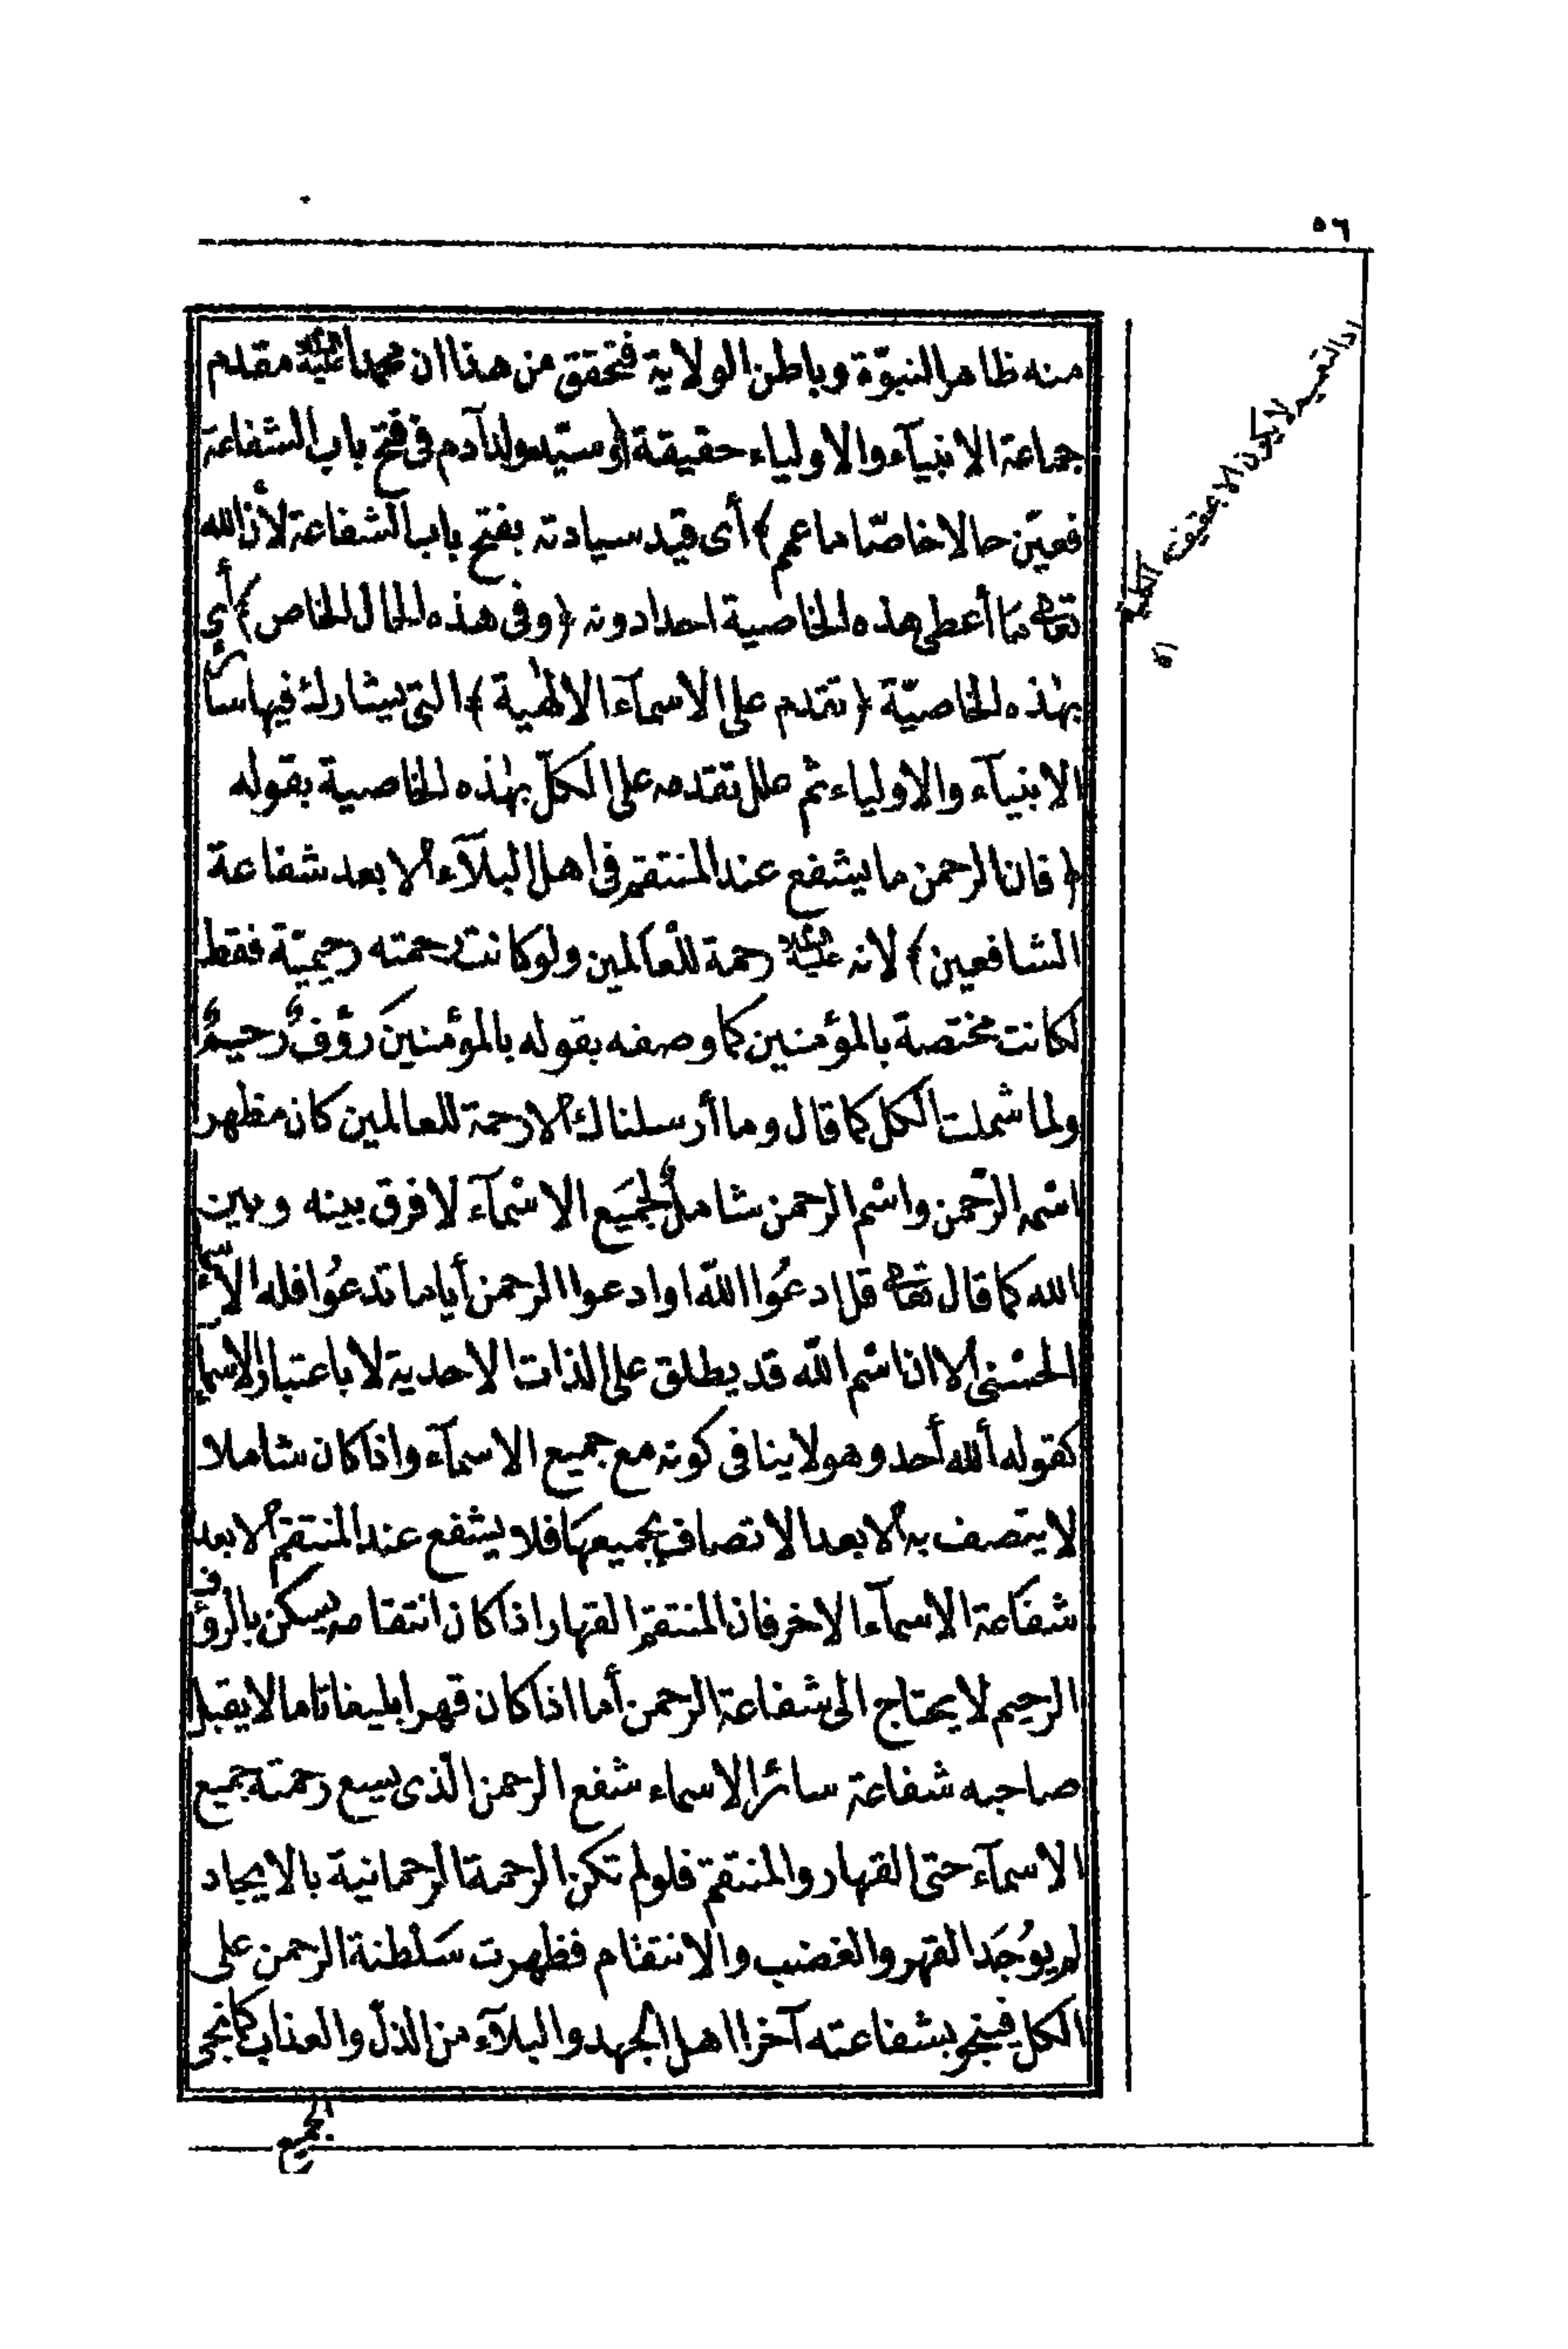 ٥٦
منه ظاهر النبوّة وباطن الولاية فتحقق من هذا ان محمدا عليه السلام مقدم
جماعة الانبيآء والاولياء حقيقة ﴿وسيد ولد آدم فى فتح باب الشفاعة
فعيّن حالا خاصّا ما عمم﴾ أى قيد سيادته بفتح باب الشفاعة لأن الله
تعالى ما أعطى هذه الخاصية احدا دونه ﴿وفى هذه الحال الخاص﴾ أي
بهذه الخاصيّة ﴿تقدم على الاسمآء الالهية﴾ التى يشارك فيها سائر
الانبيآء والاولياء ثم علل تقدمه على الكلّ بهذه الخاصية بقوله
﴿فان الرحمن ما يشفع عند المنتقم فى اهل البلآء الا بعد شفاعة
الشافعين﴾ لانه عليه السلام رحمة للعالمين ولو كانت رحمته رحيميّة فقط
لكانت مختصة بالمؤمنين كما وصفه بقوله بالمؤمنينَ رؤفٌ رحيمٌ
ولما شملت الكل كما قال وما أرسلناك الا رحمة للعالمين كان مظهر
اسْمِ الرّحمن واسْم الرحمن شاملٌ لجَميع الاسْمآء لا فرق بينه وبين
الله كما قال تعالى قل ادعُوا اللّه او ادعوا الرحمن أياما تدعُوا فله الاسمآء
الحسْنى الا ان اسْم اللّه قد يطلق على الذات الاحدية لا باعتبار الاسمآء
كقوله أللّه أحد وهو لا ينافى كونه مع جميع الاسمآء واذا كان شاملا
لا يتصف به الا بعد الاتصاف بجميعهَا فلا يشفع عند المنتقم الا بعد
شفَاعة الاسمآء الاخر فان المنتقم القهار اذا كان انتقامه يسكن بالرؤف
الرحيم لا يحتاج الى شفاعة الرحمن أما اذا كان قهرا بليغا تاما لا يقبل
صاحبه شفاعة سائر الاسماء شفع الرحمن الّذى يسع رحمته جميع
الاسمآء حتى القهار والمنتقم فلو لم تكن الرحمة الرحمانية بالايجاد
لم يوُجَد القهر والغضب والانتقام فظهرت سَلطنة الرحمن على
الكل فينجو بشفاعته آخرا اهل الجهد والبلآء من الذلّ والعذاب كما نجى
الجميع
اذ التعميم لا يكون الا بحقيقة الكلية